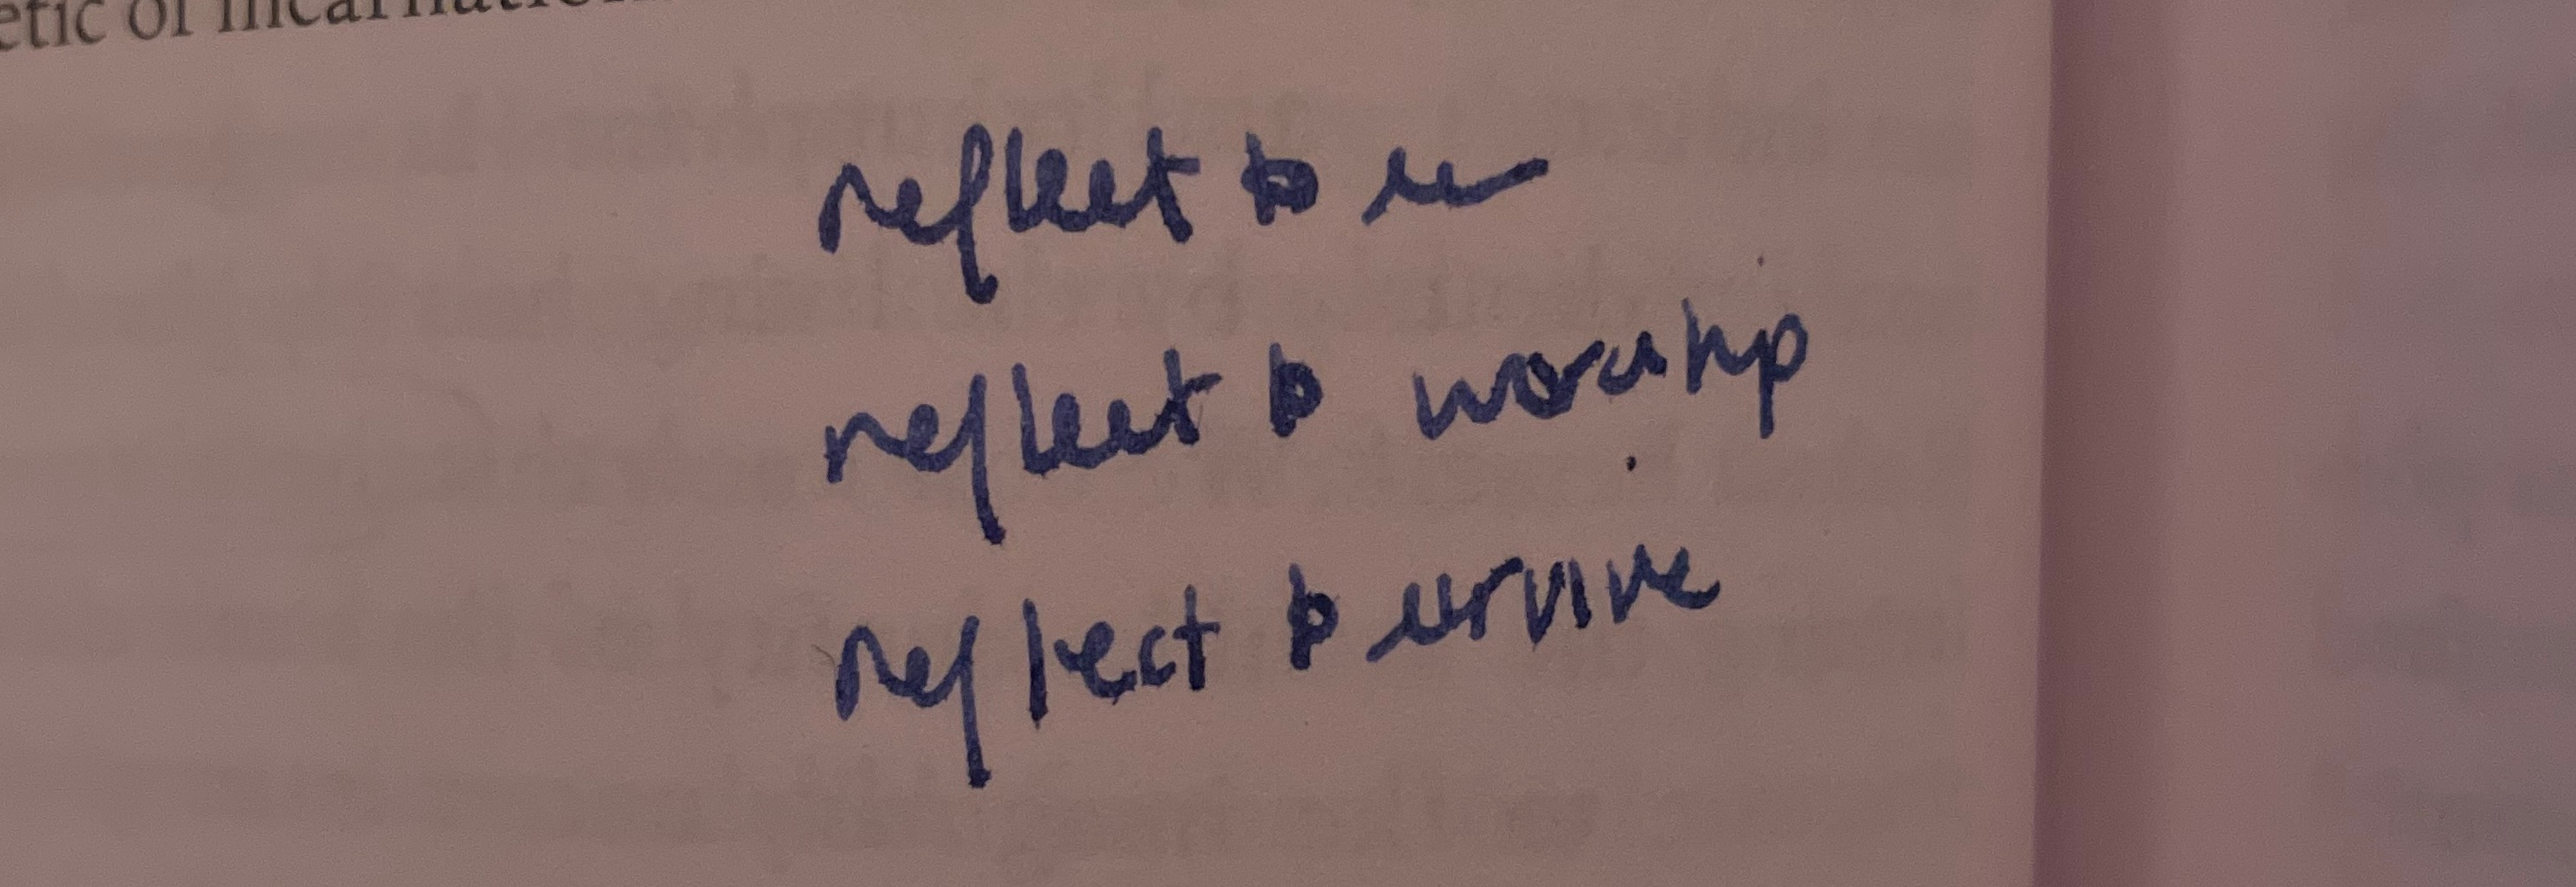 etic of incarnation
reflect to see
reflect to worship
reflect to survive